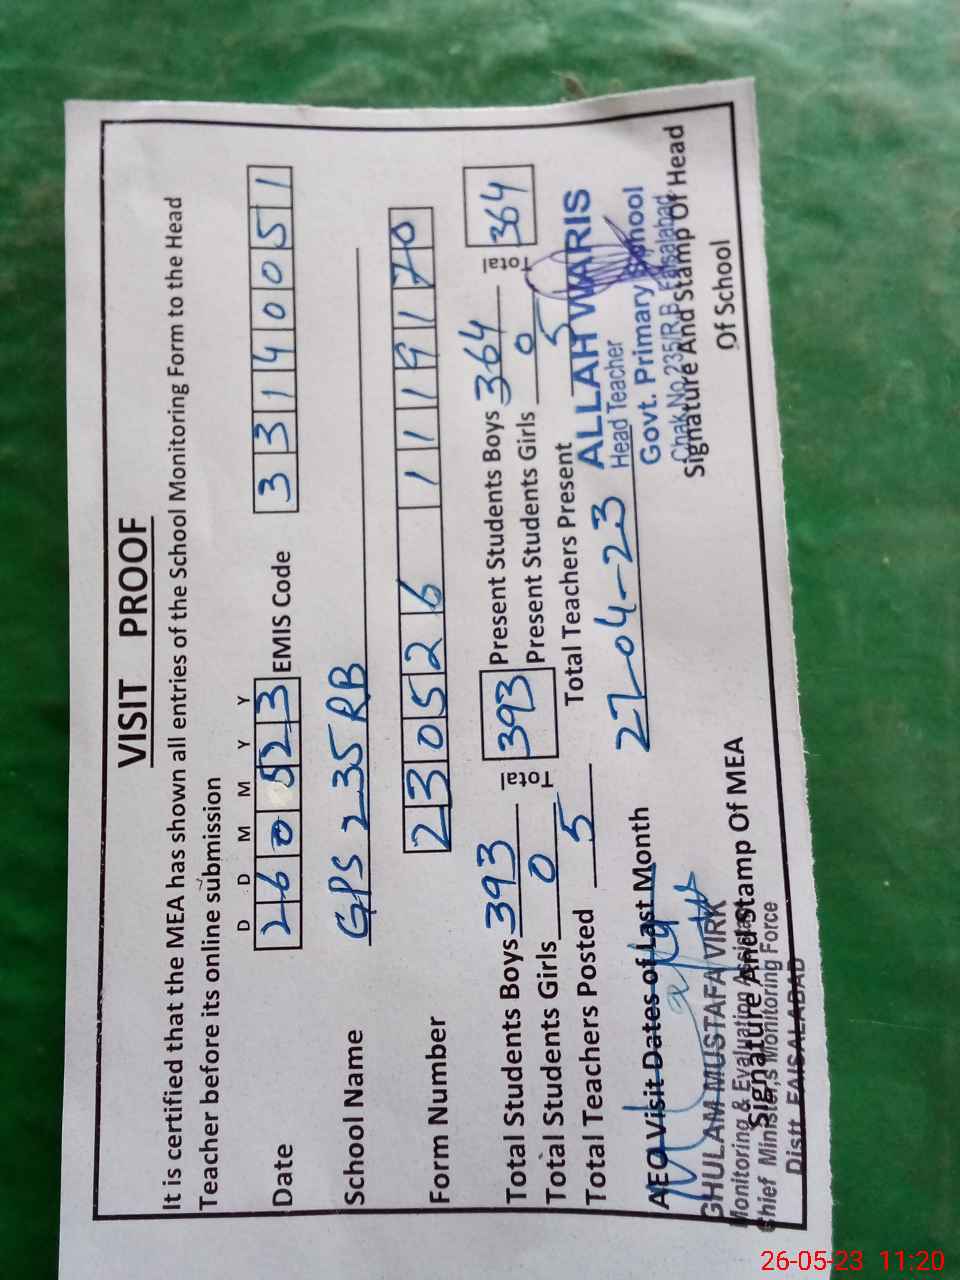 VISIT PROOF
It is certified that the MEA has shown all entries of the School Monitoring Form to the Head
Teacher before its online submission
D D M M Y Y
Date 260523 EMIS Code 33140051
School Name GPS 235RB
Form Number 230526 119170
Total Students Boys 393 Total 393 Present Students Boys 364 Total 364
Total Students Girls 0 Present Students Girls 0
Total Teachers Posted 5 Total Teachers Present 5
AEO Visit Dates of Last Month 27-04-23
ALLAH WARIS
Head Teacher
Govt. Primary School
Chak No. 235/R.B. Faisalabad
Signature And Stamp Of Head
Of School
GHULAM MUSTAFA VIRK
Monitoring & Evaluation Assistant
Signature And Stamp Of MEA
Chief Minister,s Monitoring Force
Distt FAISALABAD
26-05-23 11:20